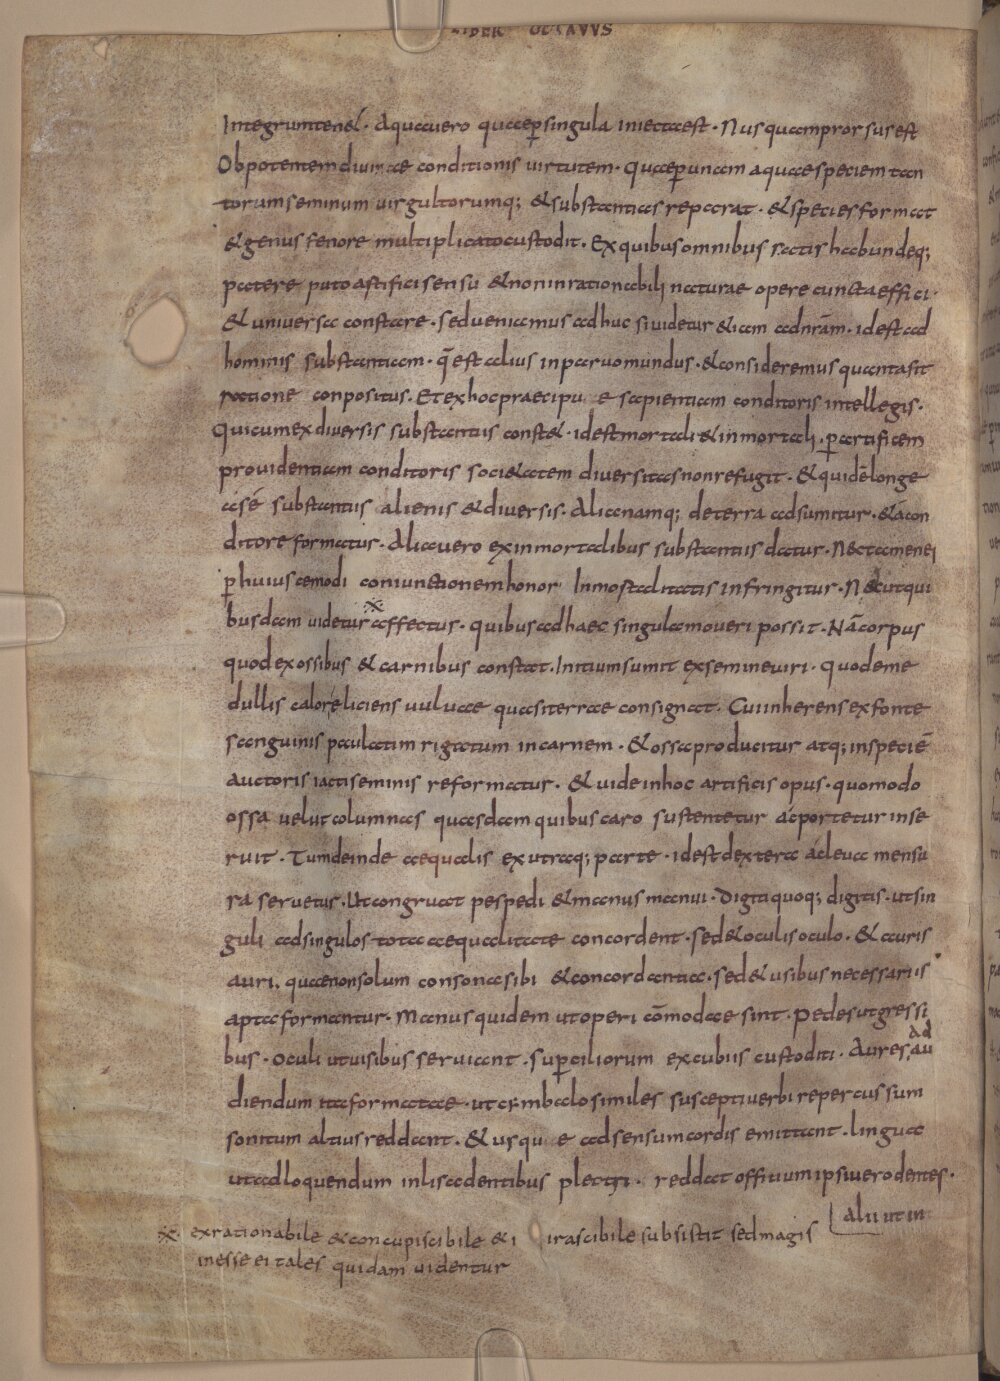 LIBER OCTAVVS
Integrumtenet. Aquauero quaeꝑsingula iniectaest. Nusquamprorsusest
Obpotentemdiuinae conditionis uirtutem. Quaeꝑunam aquaespeciem tan
torumseminum uirgultorumq; &substantias reparat. &species format
&genus fenore multiplicatocustodit. Exquibusomnibus satis habundeq;
patere puto artificisensu &noninrationabili naturae opere cunctaeffici.
&uniuersa constare. seduenicamus adhuc siuidetur &iam adnrām. idest ad
hominis substantiam. qēest alius inparuomundus. &consideremus quantasit
ratione conpositus. Etexhocpraecipu e sapientiam conditoris intellegis.
Quicumexdiuersis substantiis const&. idestmortali &inmortali. ꝑartificem
prouidentiam conditoris soci&atem diuersitasnonrefugit. &quidēlonge
asé substantiis alienis &diuersis. Alianamq; deterra adsumitur. &acon
ditore formatur. Aliauero exinmortalibus substantiis datur. Nectamenei
ꝑhuiuscemodi coniunctionemhonor Inmortalitatis infringitur. Necutqui
busdam uidetur affectus. quibusadhaec singulamoueri possit. Nācorpus
quodexossibus &carnibus constat. Initiumsumit exsemineuiri. quodeme
dullis caloreliciens uuluae quasiterrae consignat. Cuiinherensexfonte
sanguinis paulatim rigatum incarnem. &ossaproducitur atq; inspeciē
auctoris iactiseminis reformatur. &uideinhoc artificis opus. quomodo
ossa uelutcolumnas quasdamquibus caro sustentetur acportetur inse
ruit. Tumdeinde aequalis exutraq; parte. idestdextera acleua mensu
ra seruetur. Utcongruat pespedi &manus manui. Digitiquoq; digitis. utsin
guli adsingulos tota aequalitate concordent. sed&oculisoculo. &auris
auri. quaenonsolum consonasibi &concordantia. sed&usibus necessariis
aptaformantur. Manusquidem utoperi cōmodae sint. Pedesutgressi
bus. Oculi utuisibus seruiant. suꝑciliorum excubiis custoditi. Aures ad au
diendum itaformatae. utcymbalosimiles susceptiuerbi repercussum
sonitum altiusreddant. &usqu e adsensumcordis emittant. lingua
utadloquendum inlisadentibus plectri. reddat offitiumipsiuerodentes.
alii ut in
exrationabile &concupiscibile & i irascibile subsistit sedmagis
inesse ei tales quidam uidentur